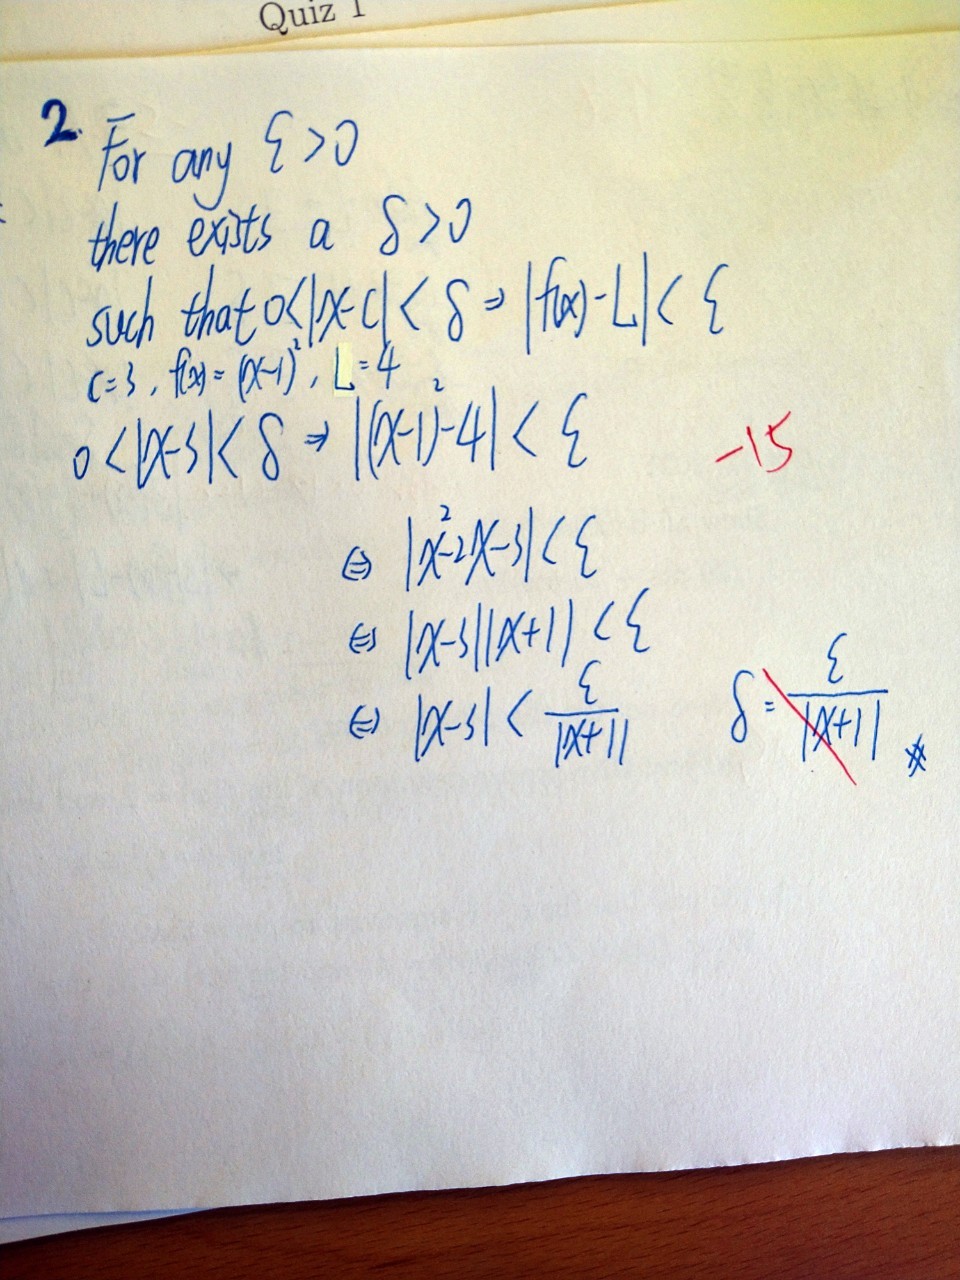 Quiz 1
2. For any ε>0
there exists a δ>0
such that 0<|x-c|<δ ⇒ |f(x)-L|<ε
c=3, f(x)=(x-1)², L=4
0<|x-3|<δ ⇒ |(x-1)²-4|<ε
-15
⇔ |x²-2x-3|<ε
⇔ |x-3||x+1|<ε
⇔ |x-3|<ε/|x+1| δ=ε/|x+1| ※